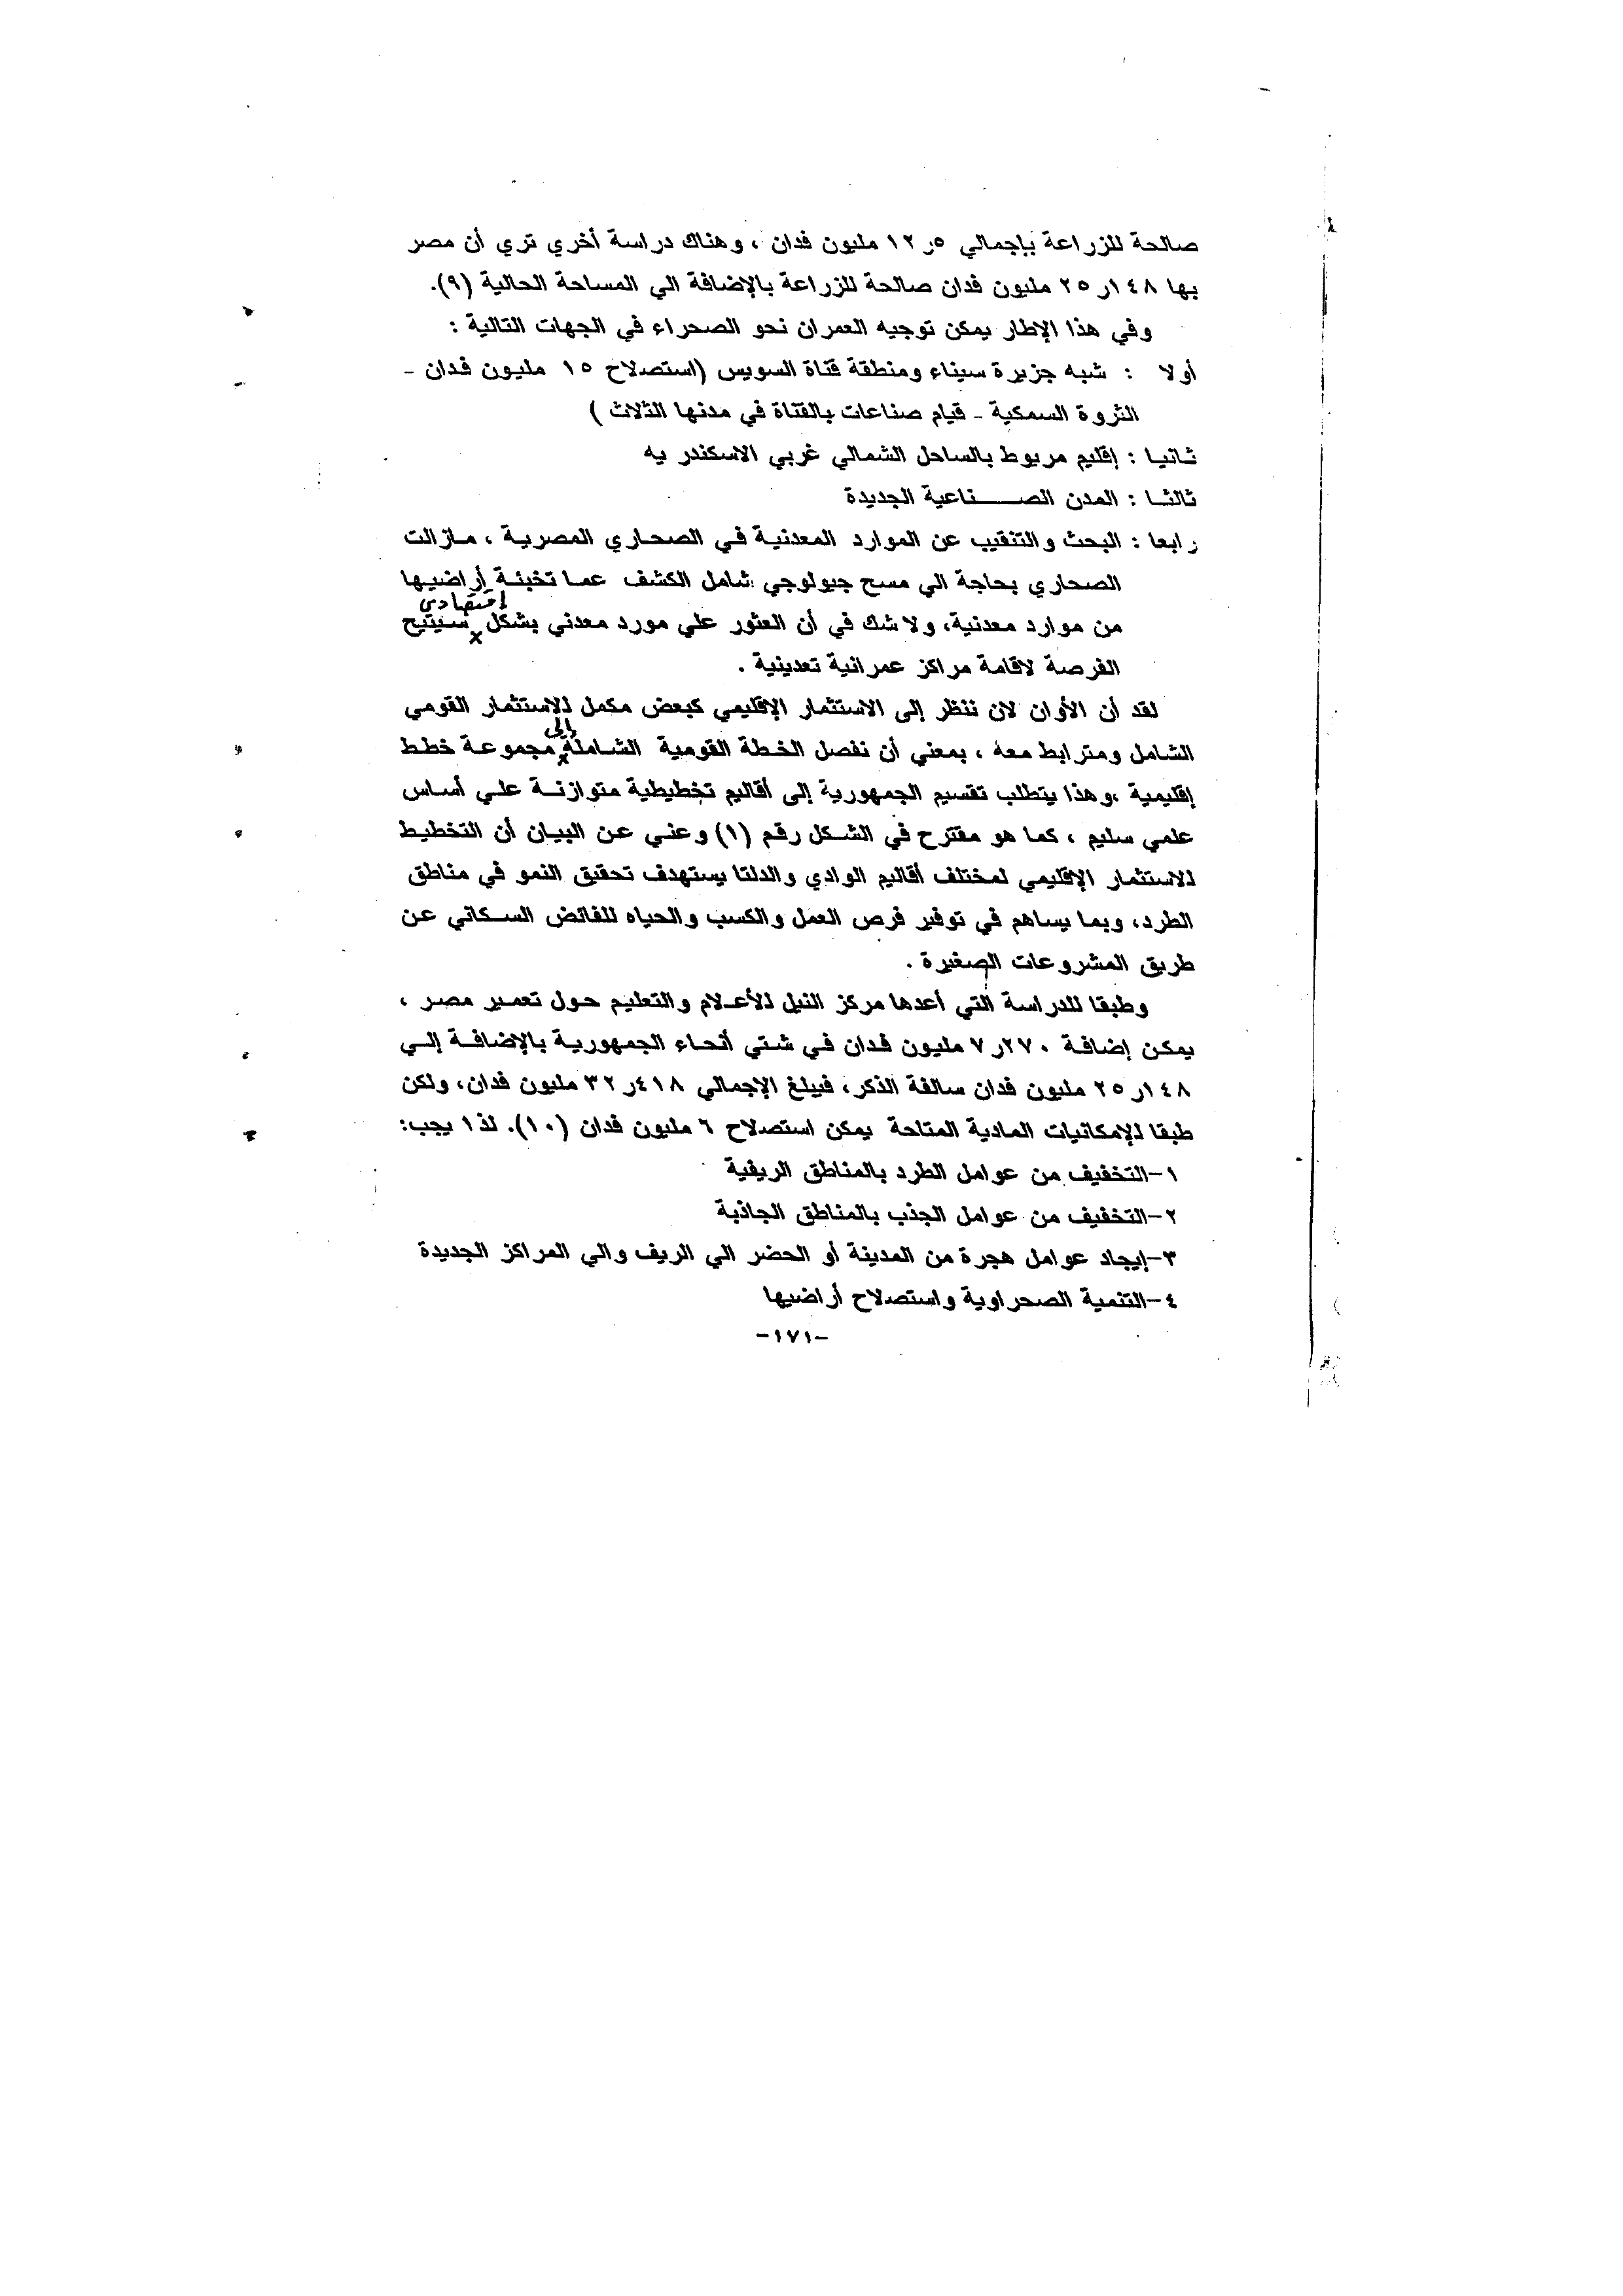 صالحة للزراعة بإجمالي ٥ر١٢ مليون فدان ، وهناك دراسة أخري تري أن مصر
بها ١٤٨ر٢٥ مليون فدان صالحة للزراعة بالإضافة الي المساحة الحالية (٩).
وفي هذا الإطار يمكن توجيه العمران نحو الصحراء في الجهات التالية :
أولا : شبه جزيرة سيناء ومنطقة قناة السويس (استصلاح ١٥ مليون فدان -
الثروة السمكية - قيام صناعات بالقناة في مدنها الثلاث )
ثانيا : إقليم مريوط بالساحل الشمالي غربي الاسكندر يه
ثالثا : المدن الصـــناعية الجديدة
رابعا : البحث والتنقيب عن الموارد المعدنية في الصحاري المصرية ، مازالت
الصحاري بحاجة الي مسح جيولوجي شامل الكشف عما تخبئة أراضيها
من موارد معدنية، ولاشك في أن العثور علي مورد معدني بشكل اقتصادى سيتيح
الفرصة لاقامة مراكز عمرانية تعدينية .
لقد أن الأوان لان ننظر إلى الاستثمار الإقليمي كبعض مكمل للاستثمار القومي
الشامل ومترابط معه ، بمعني أن نفصل الخطة القومية الشاملة إلى مجموعة خطط
إقليمية ،وهذا يتطلب تقسيم الجمهورية إلى أقاليم تخطيطية متوازنة علي أساس
علمي سليم ، كما هو مقترح في الشكل رقم (١) وعني عن البيان أن التخطيط
للاستثمار الإقليمي لمختلف أقاليم الوادي والدلتا يستهدف تحقيق النمو في مناطق
الطرد، وبما يساهم في توفير فرص العمل والكسب والحياه للفائض السكاني عن
طريق المشروعات الصغيرة .
وطبقا للدراسة التي أعدها مركز النيل للأعلام والتعليم حول تعمير مصر ،
يمكن إضافة ٢٧٠ر٧ مليون فدان في شتي أنحاء الجمهورية بالإضافة إلي
١٤٨ر٢٥ مليون فدان سالفة الذكر، فيبلغ الإجمالي ٤١٨ر٣٢ مليون فدان، ولكن
طبقا للإمكانيات المادية المتاحة يمكن استصلاح ٦ مليون فدان (١٠). لذا يجب:
١-التخفيف من عوامل الطرد بالمناطق الريفية
٢-التخفيف من عوامل الجذب بالمناطق الجاذبة
٣-إيجاد عوامل هجرة من المدينة أو الحضر الي الريف والي المراكز الجديدة
٤-التنمية الصحراوية واستصلاح أراضيها
-١٧١-